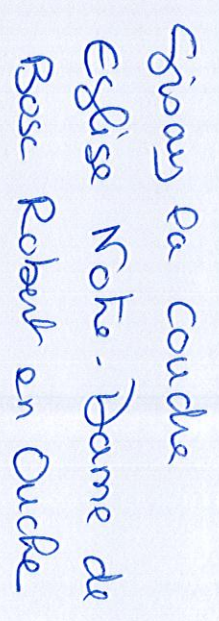 Gisay la Coudre
Eglise Notre-Dame de
Bosc Robert en Ouche